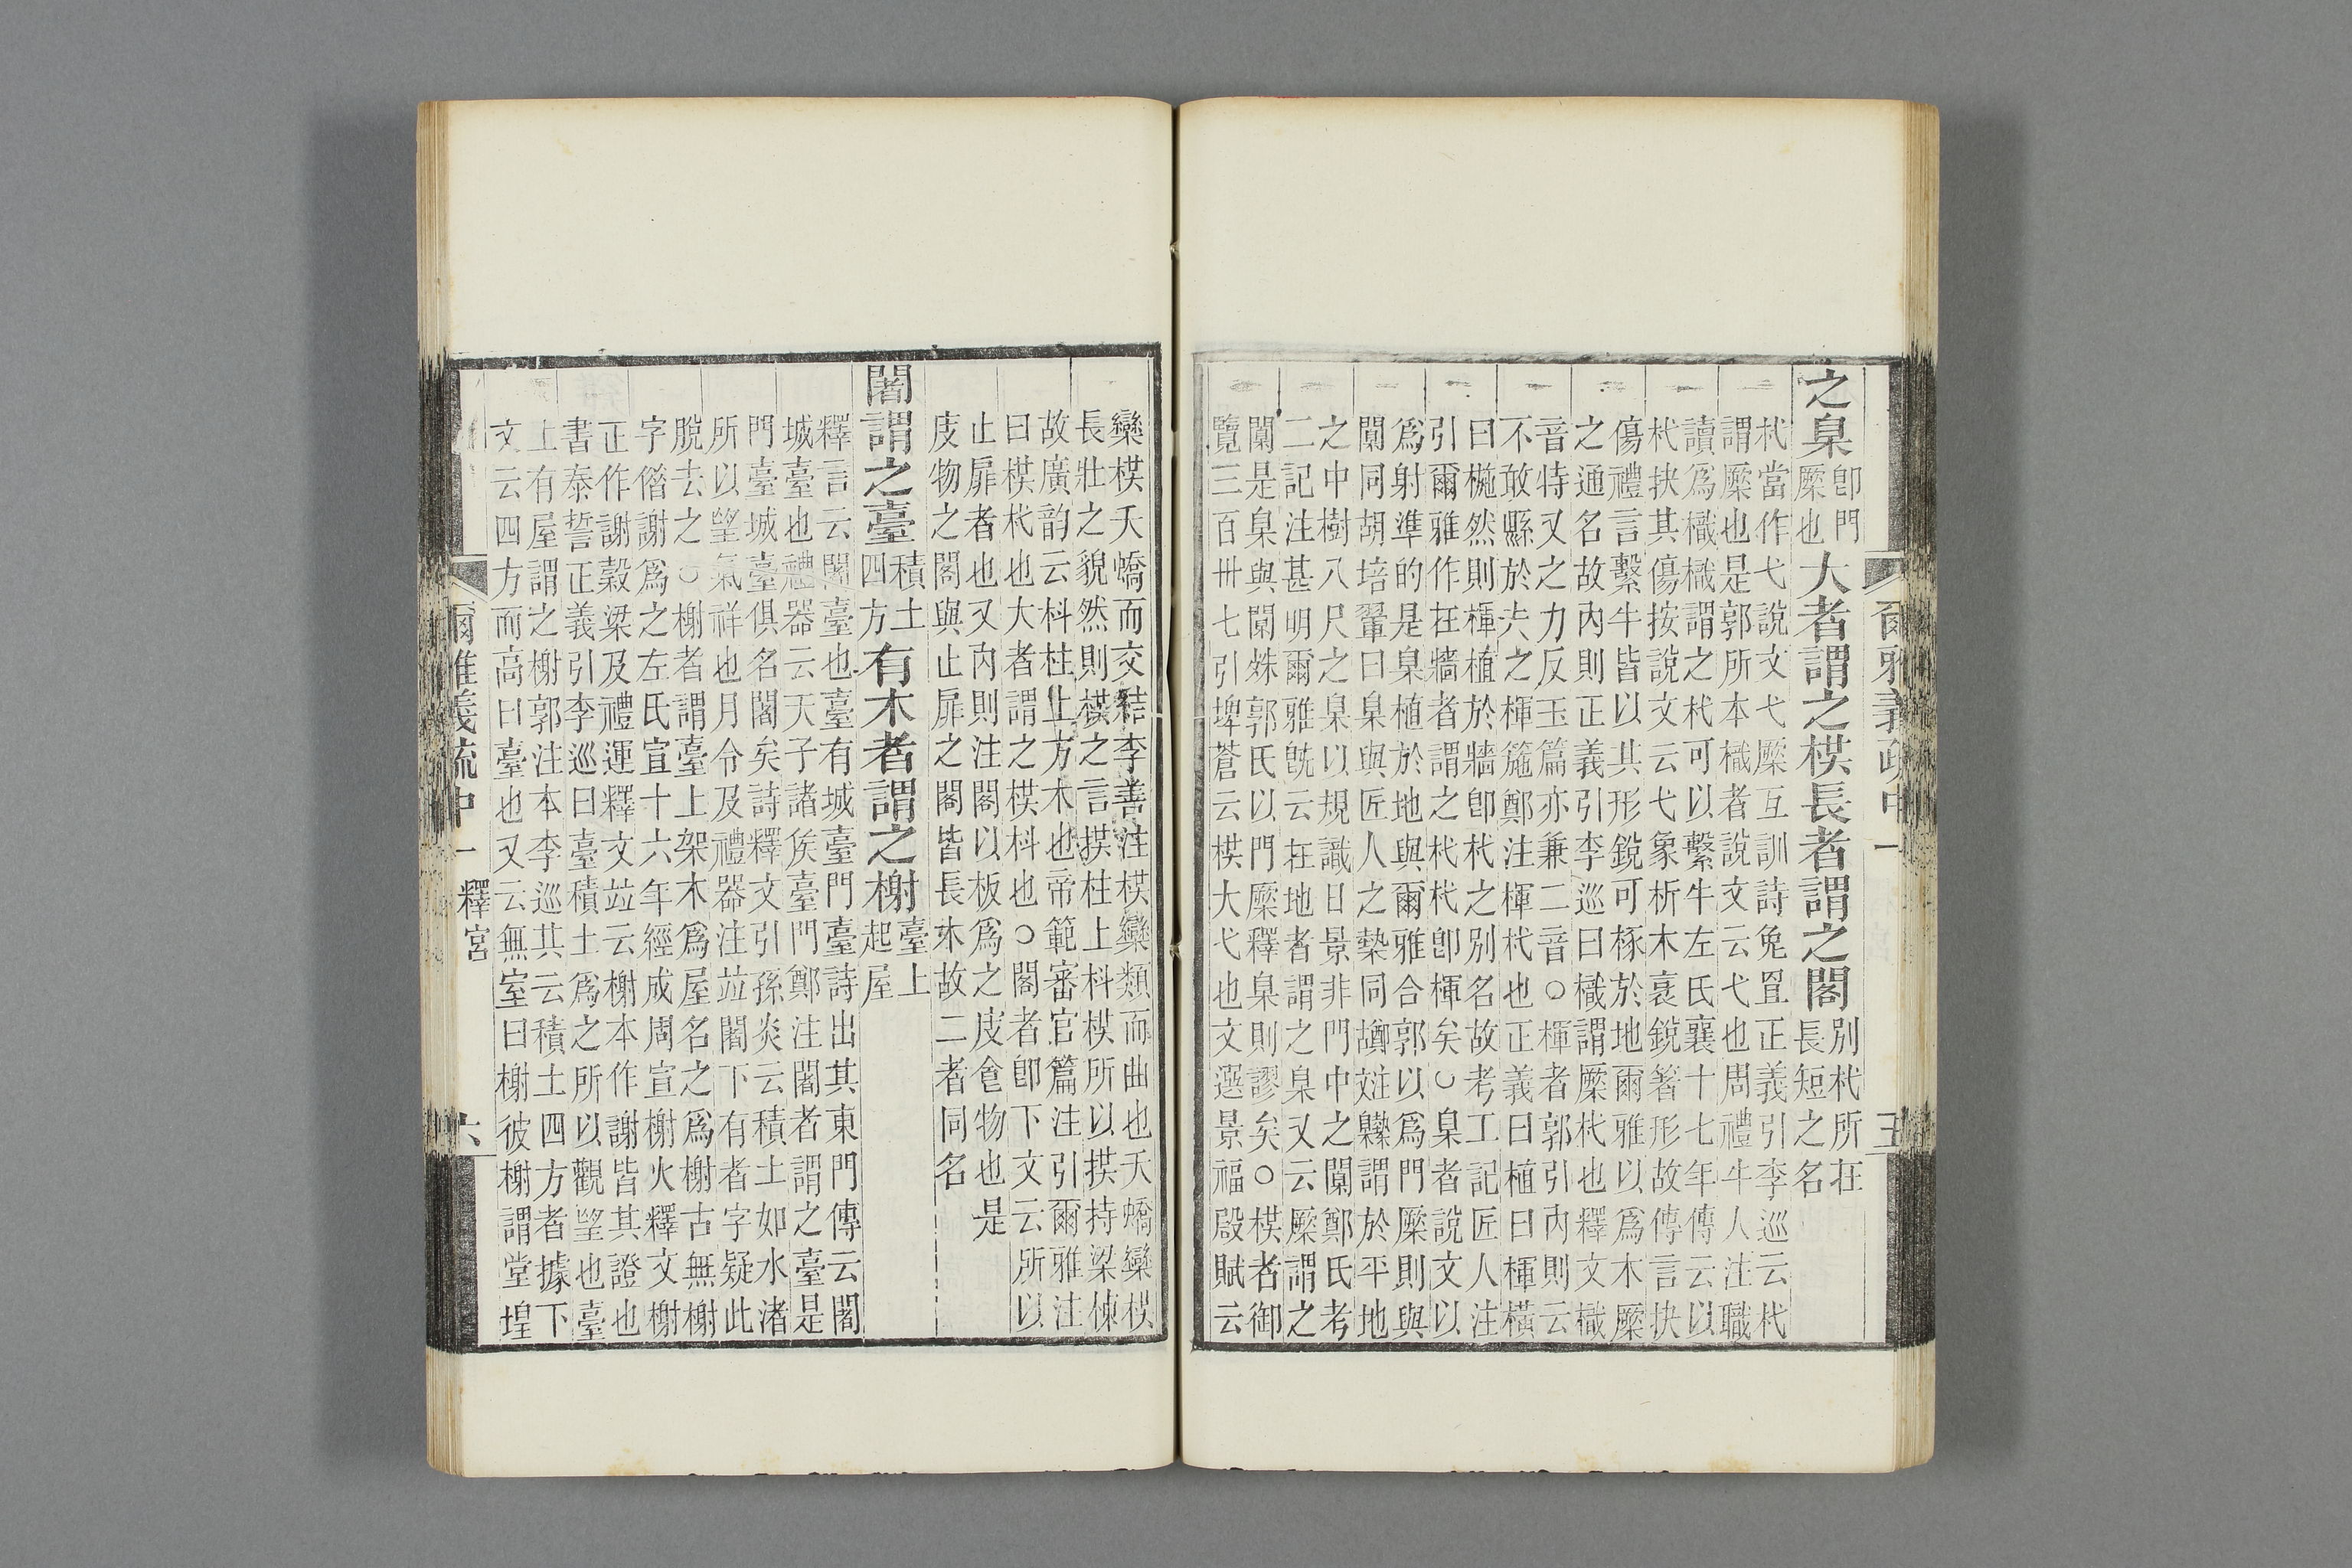 爾雅義疏中一 五
之臬即門橜也大者謂之栱長者謂之閣別杙所在長短之名
杙當作弋說文弋橜互訓詩兔罝正義引李巡云杙
謂橜也是郭所本樴者說文云弋也周禮牛人注職
讀爲樴樴謂之杙可以繫牛左氏襄十七年傳云以
杙抉其傷按說文云弋象析木衺銳箸形故傳言抉
傷禮言繫牛皆以其形銳可椓於地爾雅以爲木橜
之通名故內則正義引李巡曰樴謂橜杙也釋文樴
音特又之力反玉篇亦兼二音○楎者郭引內則云
不敢縣於夫之楎箷鄭注楎杙也正義曰植曰楎橫
曰椸然則楎植於牆即杙之別名故考工記匠人注
引爾雅作在牆者謂之杙杙即楎矣○臬者說文以
爲射準的是臬植於地與爾雅合郭以爲門橜則與
闑同胡培翬曰臬與匠人之槷同謂於平地
之中樹八尺之臬以規識日景非門中之闑鄭氏考
二記注甚明爾雅旣云在地者謂之臬又云橜謂之
闑是臬與闑殊郭氏以門橜釋臬則謬矣○栱者御
覽三百卅七引埤蒼云栱大弋也文選景福殿賦云
欒栱夭蟜而交結李善注栱欒類而曲也夭蟜欒栱
長壯之貌然則栱之言拱柱上枓栱所以拱持梁棟
故廣韵云枓柱上方木也帝範審官篇注引爾雅注
曰栱杙也大者謂之栱枓也○閣者即下文云所以
止扉者也又內則注閣以板爲之庋食物也是
庋物之閣與止扉之閣皆長木故二者同名
闍謂之臺積土四方有木者謂之榭臺上起屋
釋言云闍臺也臺有城臺門臺詩出其東門傳云闍
城臺也禮器云天子諸矦臺門鄭注闍者謂之臺是
門臺城臺俱名闍矣詩釋文引孫炎云積土如水渚
所以望氣祥也月令及禮器注竝闍下有者字疑此
脫去之○榭者謂臺上架木爲屋名之爲榭古無榭
字僭謝爲之左氏宣十六年經成周宣榭火釋文榭
正作謝穀梁及禮運釋文竝云榭本作謝皆其證也
書泰誓正義引李巡曰臺積土爲之所以觀望也臺
上有屋謂之榭郭注本李巡其云積土四方者據下
文云四方而高曰臺也又云無室曰榭彼榭謂堂堭
爾雅義疏中一 釋宮 六